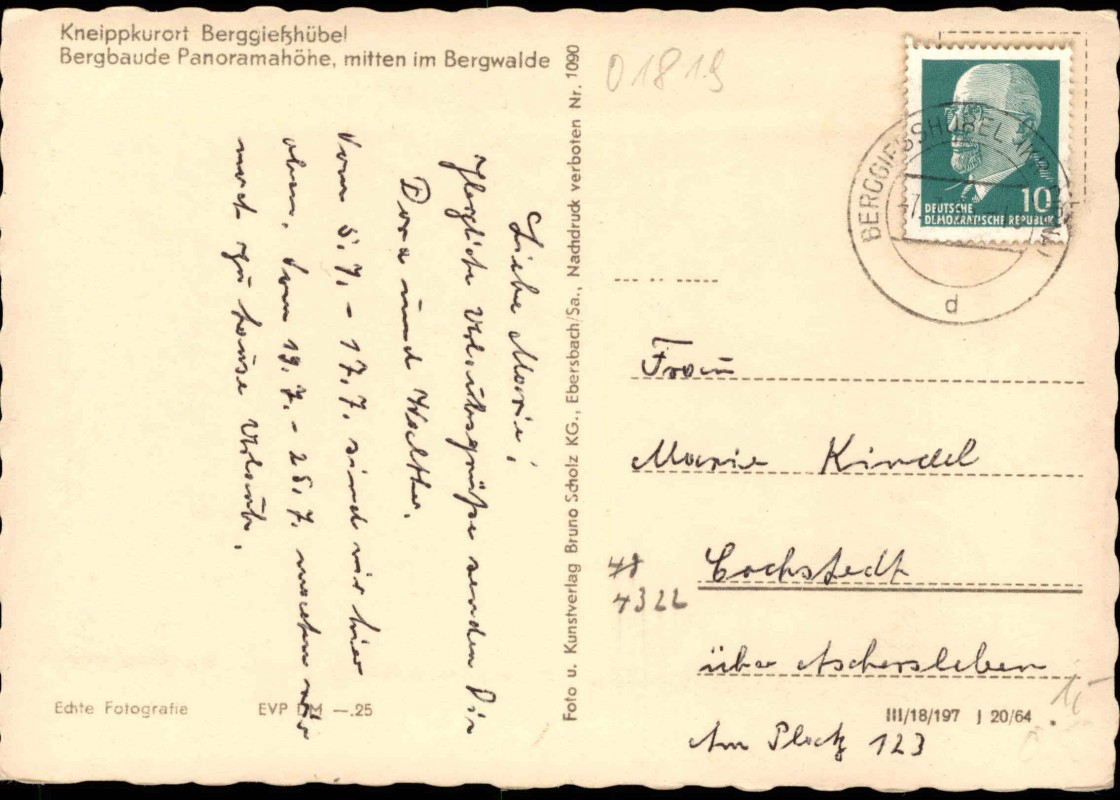 Kneippkurort Berggießhübel
Bergbaude Panoramahöhe, mitten im Bergwalde
Liebe Marie!
Herzliche Urlaubsgrüße senden Dir
Dora und Walther.
Vom 5.7. - 17.7. sind wir hier
oben, vom 19.7. - 25.7. machen wir
noch zu Hause Urlaub.
Echte Fotografie
EVP DM —.25
Foto u. Kunstverlag Bruno Scholz KG., Ebersbach/Sa., Nachdruck verboten Nr. 1090
01819
BERGGIESSHÜBEL
d
10
DEUTSCHE
DEMOKRATISCHE REPUBLIK
Frau
Marie Kindel
48
4322
Cochstedt
über Aschersleben
III/18/197 J 20/64
1,-
Am Platz 123